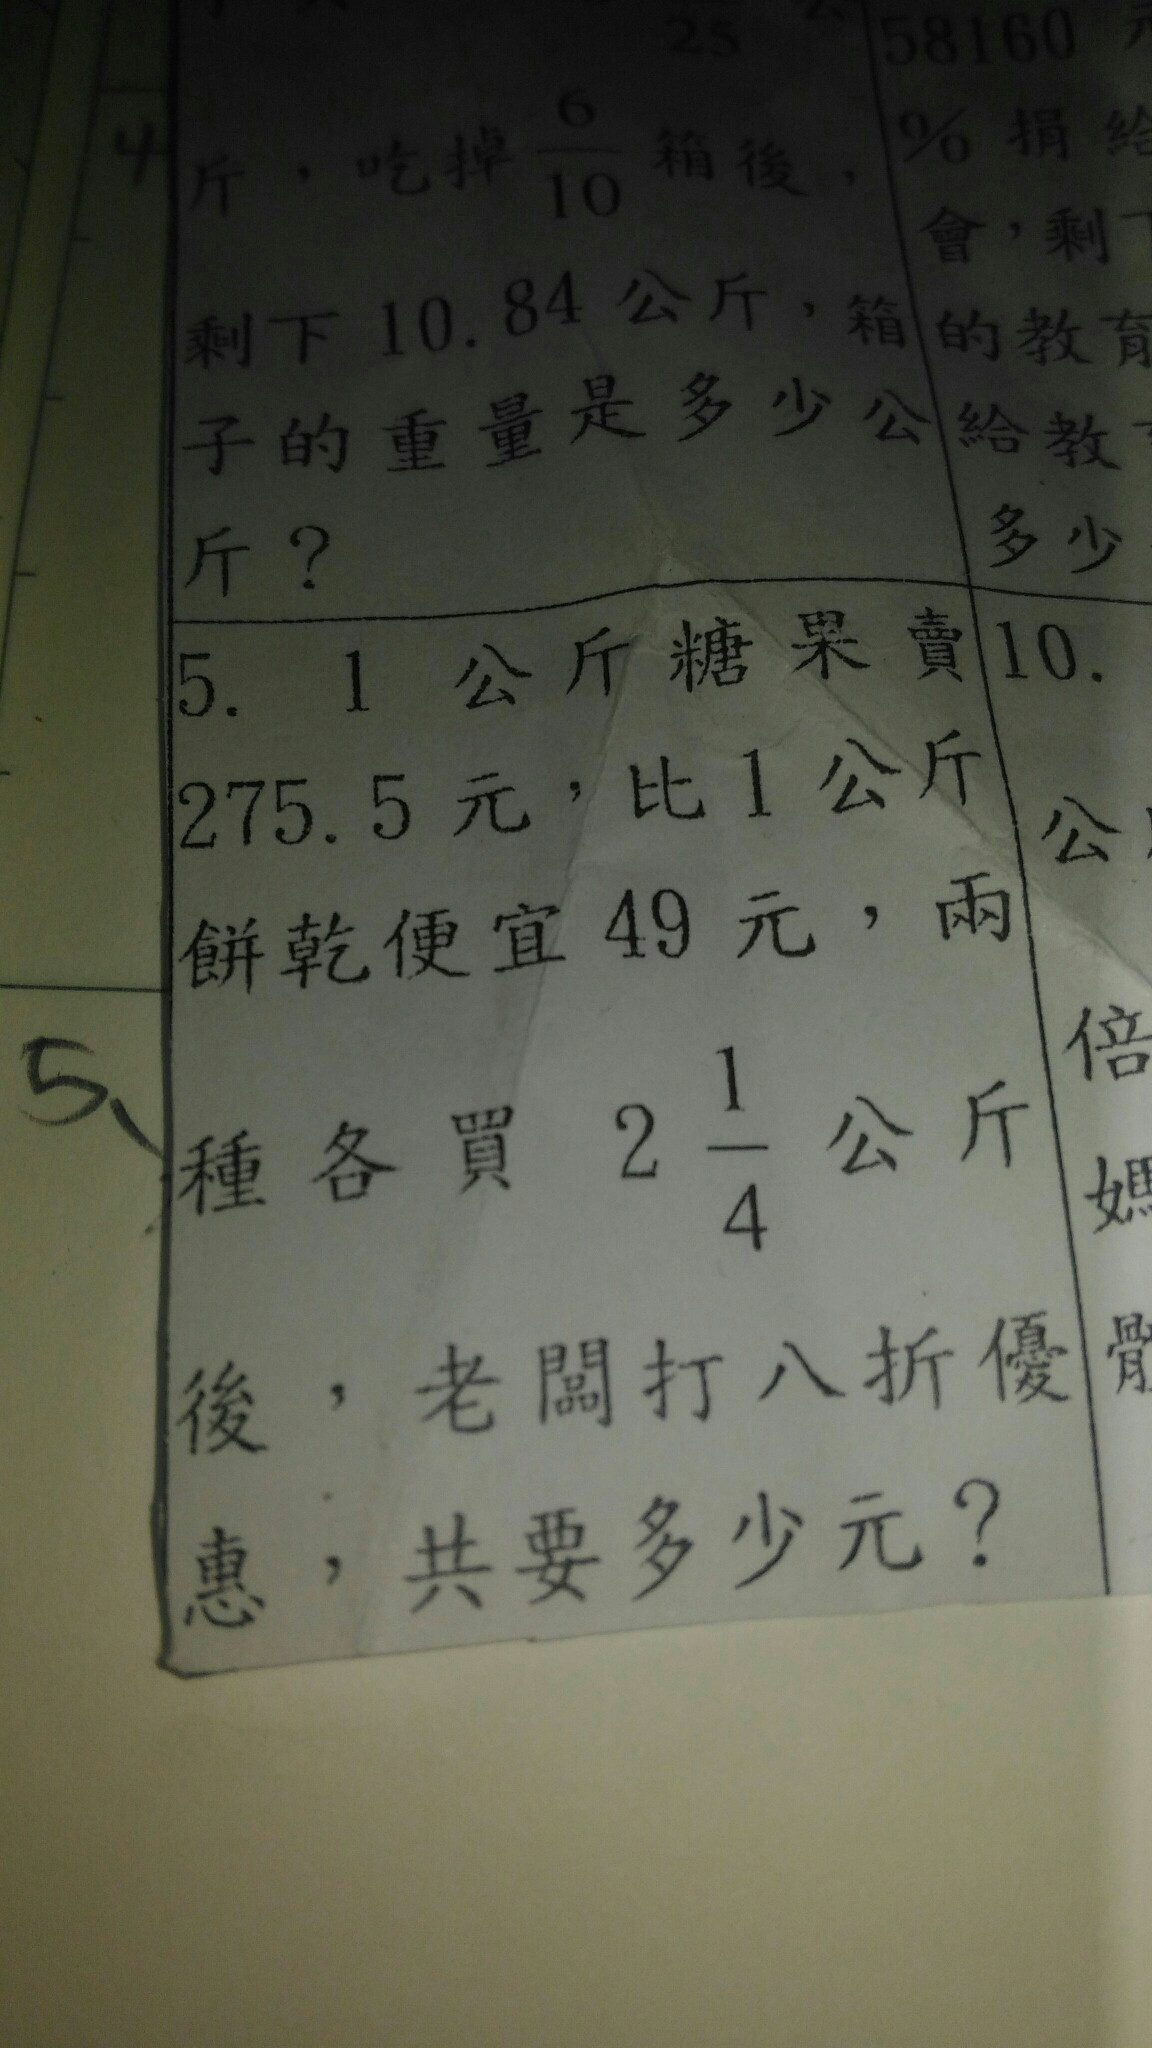 25
斤，吃掉 6/10 箱後，
剩下 10.84 公斤，箱
子的重量是多少公
斤？
4
5. 1 公斤糖果賣
275.5 元，比 1 公斤
餅乾便宜 49 元，兩
種各買 2 1/4 公斤
後，老闆打八折優
惠，共要多少元？
5、
58160 元
% 捐給
會，剩下
的教育
給教
多少
10.
公
倍
媽